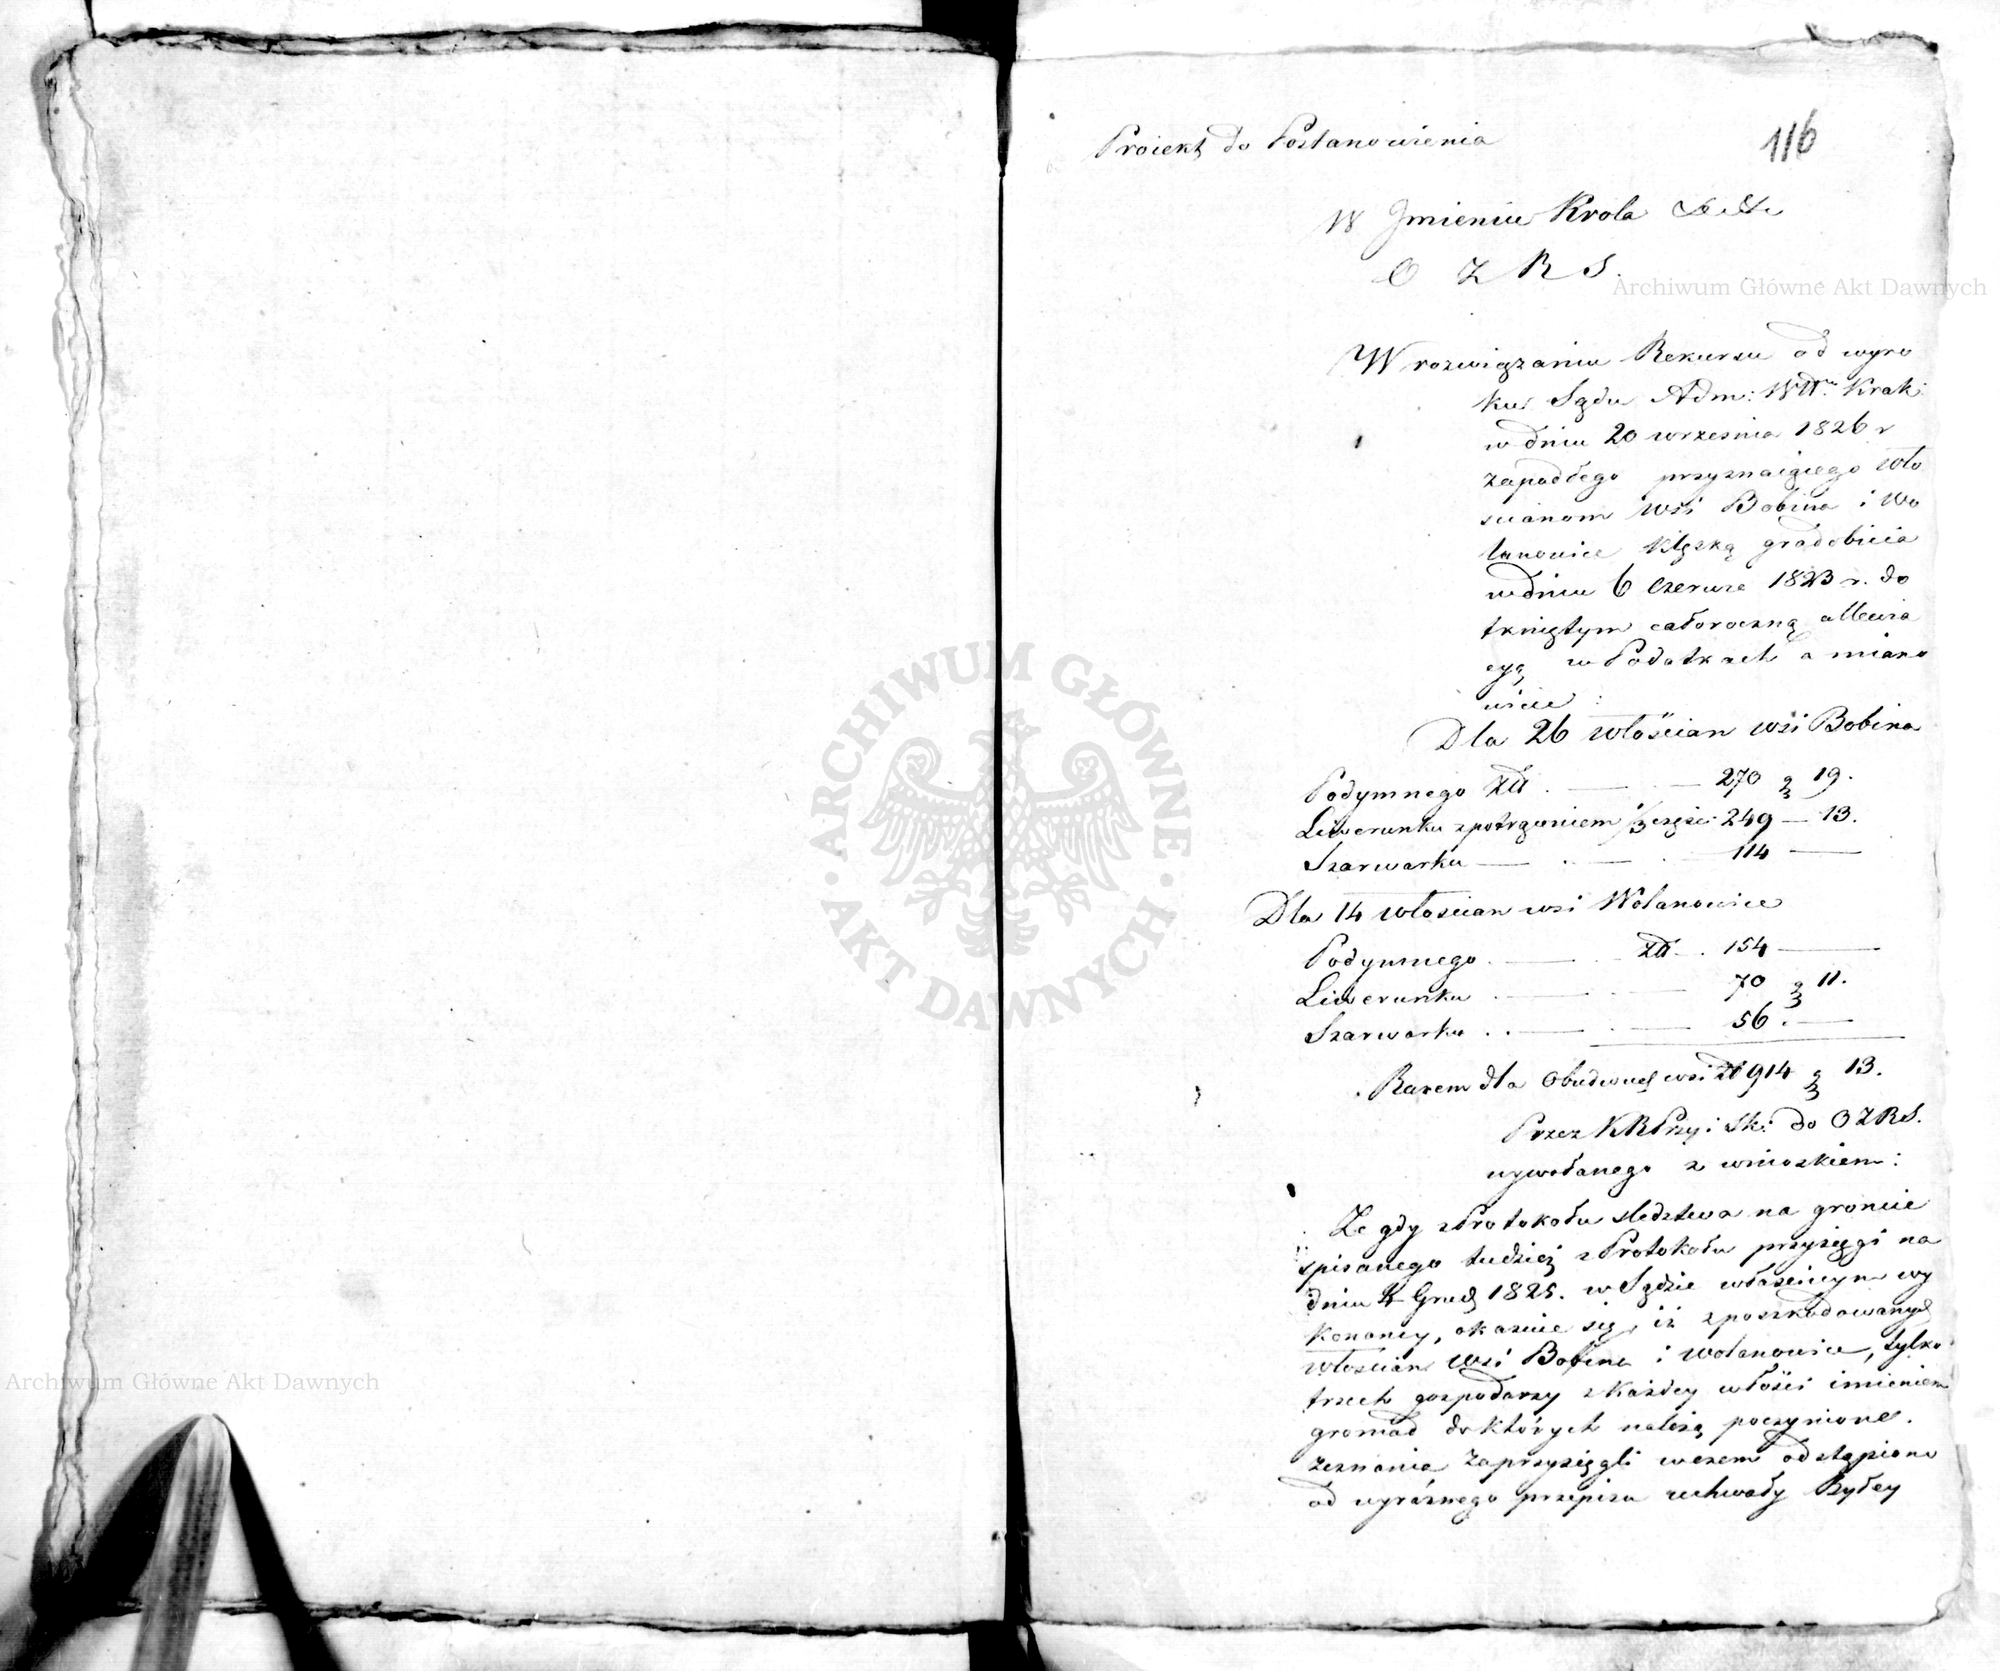 Proiekt do Postanowienia
116
W Jmieniu Krola &c &c
O Z R S.
W rozwiązaniu Rekursu od wyro
ku Sądu Adm: Wdztwa Krak:
w dniu 20 września 1826 r
zapadłego przyznaiącego wło
scianom wsi Bobina i Wo
lanowice klęską gradobicia
w dniu 6 Czerwca 1823 r. do
tkniętym całoroczną allewia
cyą w Podatkach a miano
wicie :
Dla 26 włościan wsi Bobina
Podymnego Złt . — . — 270 g 19.
Liwerunku z potrąceniem 1/3 części 249 — 13.
Szarwarku — . — . — 114 —
Dla 14 włoscian wsi Wolanowice
Podymnego . — . Złt . 154 —
Liwerunku . — . — 70 g 11.
Szarwarku . . — . — 56 . —
Razem dla obudwuch wsi Zł 914 g 13.
Przez KRPrzy i Sk: do OZRS.
wywołanego z wnioskiem:
Ze gdy z Protokołu sledztwa na groncie
spisanego tudzież z Protokołu przysięgi na
dniu 4 Grud 1825. w Sądzie właściwym wy
konaney, okazuie się, iż z poszkodowanych
włoscian wsi Bobina i Wolanowice, tylko
trzech gospodarzy z każdey włości imieniem
gromad do których należą poczynione
zeznania zaprzysięgli wczem odstąpiono
od wyraźnego przepisu uchwały Byłey
Archiwum Główne Akt Dawnych
Archiwum Główne Akt Dawnych
ARCHIWUM GŁÓWNE · AKT DAWNYCH ·